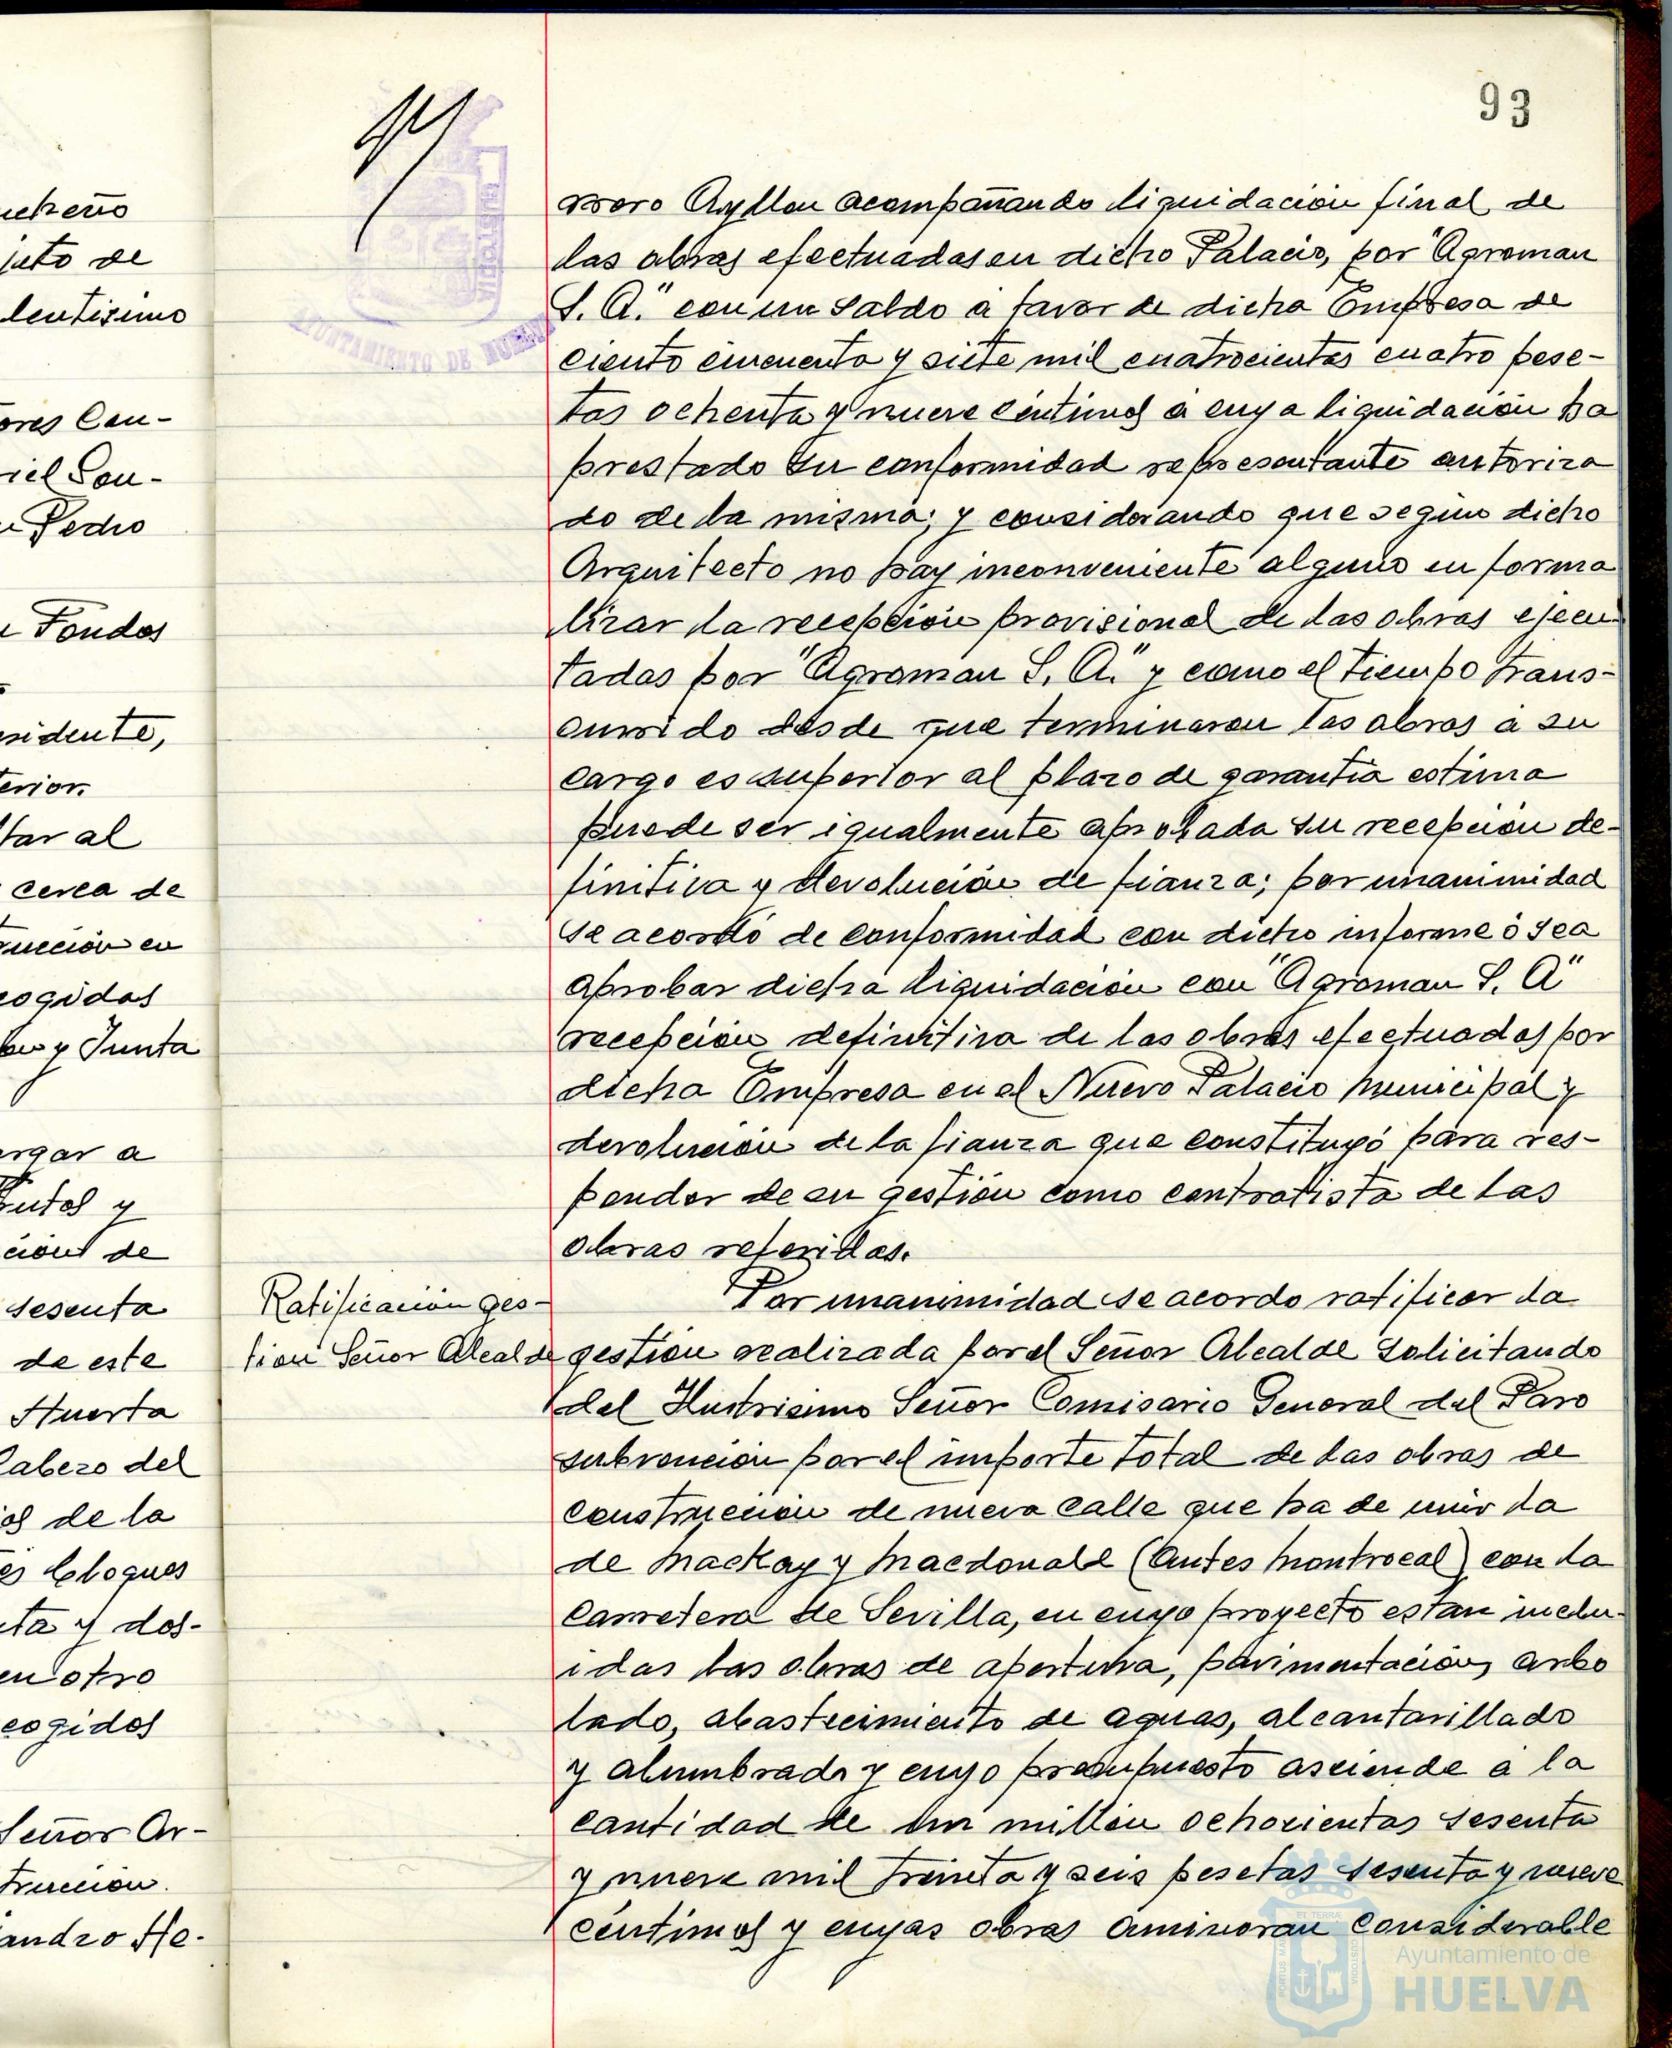 93
uekeño
juto de
lentisimo
ores Con-
riel Son-
Pedro
Fondos
sidente,
erior.
tar al
cerca de
ucción en
cogidas
y Junta
rgar a
y
ción de
sesenta
de este
Huerta
Cabezo del
de la
bloques
ta y dos-
en otro
cogidos
Señor Ar-
trucción.
andro He-
AYUNTAMIENTO DE HUELVA
rroro Ayllon acompañando liquidación final de
las obras efectuadas en dicho Palacio, por "Agroman
S. A." con un saldo a favor de dicha Empresa de
ciento cincuenta y siete mil cuatrocientas cuatro pese-
tas ochenta y nueve centimos a cuya liquidación ha
prestado su conformidad representante autoriza
do de la misma; y considerando que segun dicho
Arquitecto no hay inconveniente alguno en forma
lizar la recepción provisional de las obras ejecu
tadas por "Agroman S. A." y como el tiempo trans-
currido desde que terminaron las obras a su
cargo es superior al plazo de garantia estima
puede ser igualmente aprobada su recepción de-
finitiva y devolución de fianza; por unanimidad
se acordó de conformidad con dicho informe ó sea
aprobar dicha liquidación con "Agroman S. A"
recepción definitiva de las obras efectuadas por
dicha Empresa en el Nuevo Palacio Municipal y
devolución de la fianza que constituyó para res-
ponder de su gestión como contratista de las
obras referidas.
Ratificación ges-
tion Señor Alcalde
Por unanimidad se acordo ratificar la
gestión realizada por el Señor Alcalde solicitando
del Ilustrisimo Señor Comisario General del Paro
subvención por el importe total de las obras de
construcción de nueva calle que ha de unir la
de Mackay y Macdonald (antes Montroeal) con la
Carretera de Sevilla, en cuyo proyecto estan inclu-
idas las obras de apertura, pavimentación, arbo
lado, abastecimiento de aguas, alcantarillado
y alumbrado y cuyo presupuesto asciende a la
cantidad de un millón ochocientas sesenta
y nueve mil treinta y seis pesetas sesenta y nueve
céntimos y cuyas obras aminoran considerable
Ayuntamiento de
HUELVA